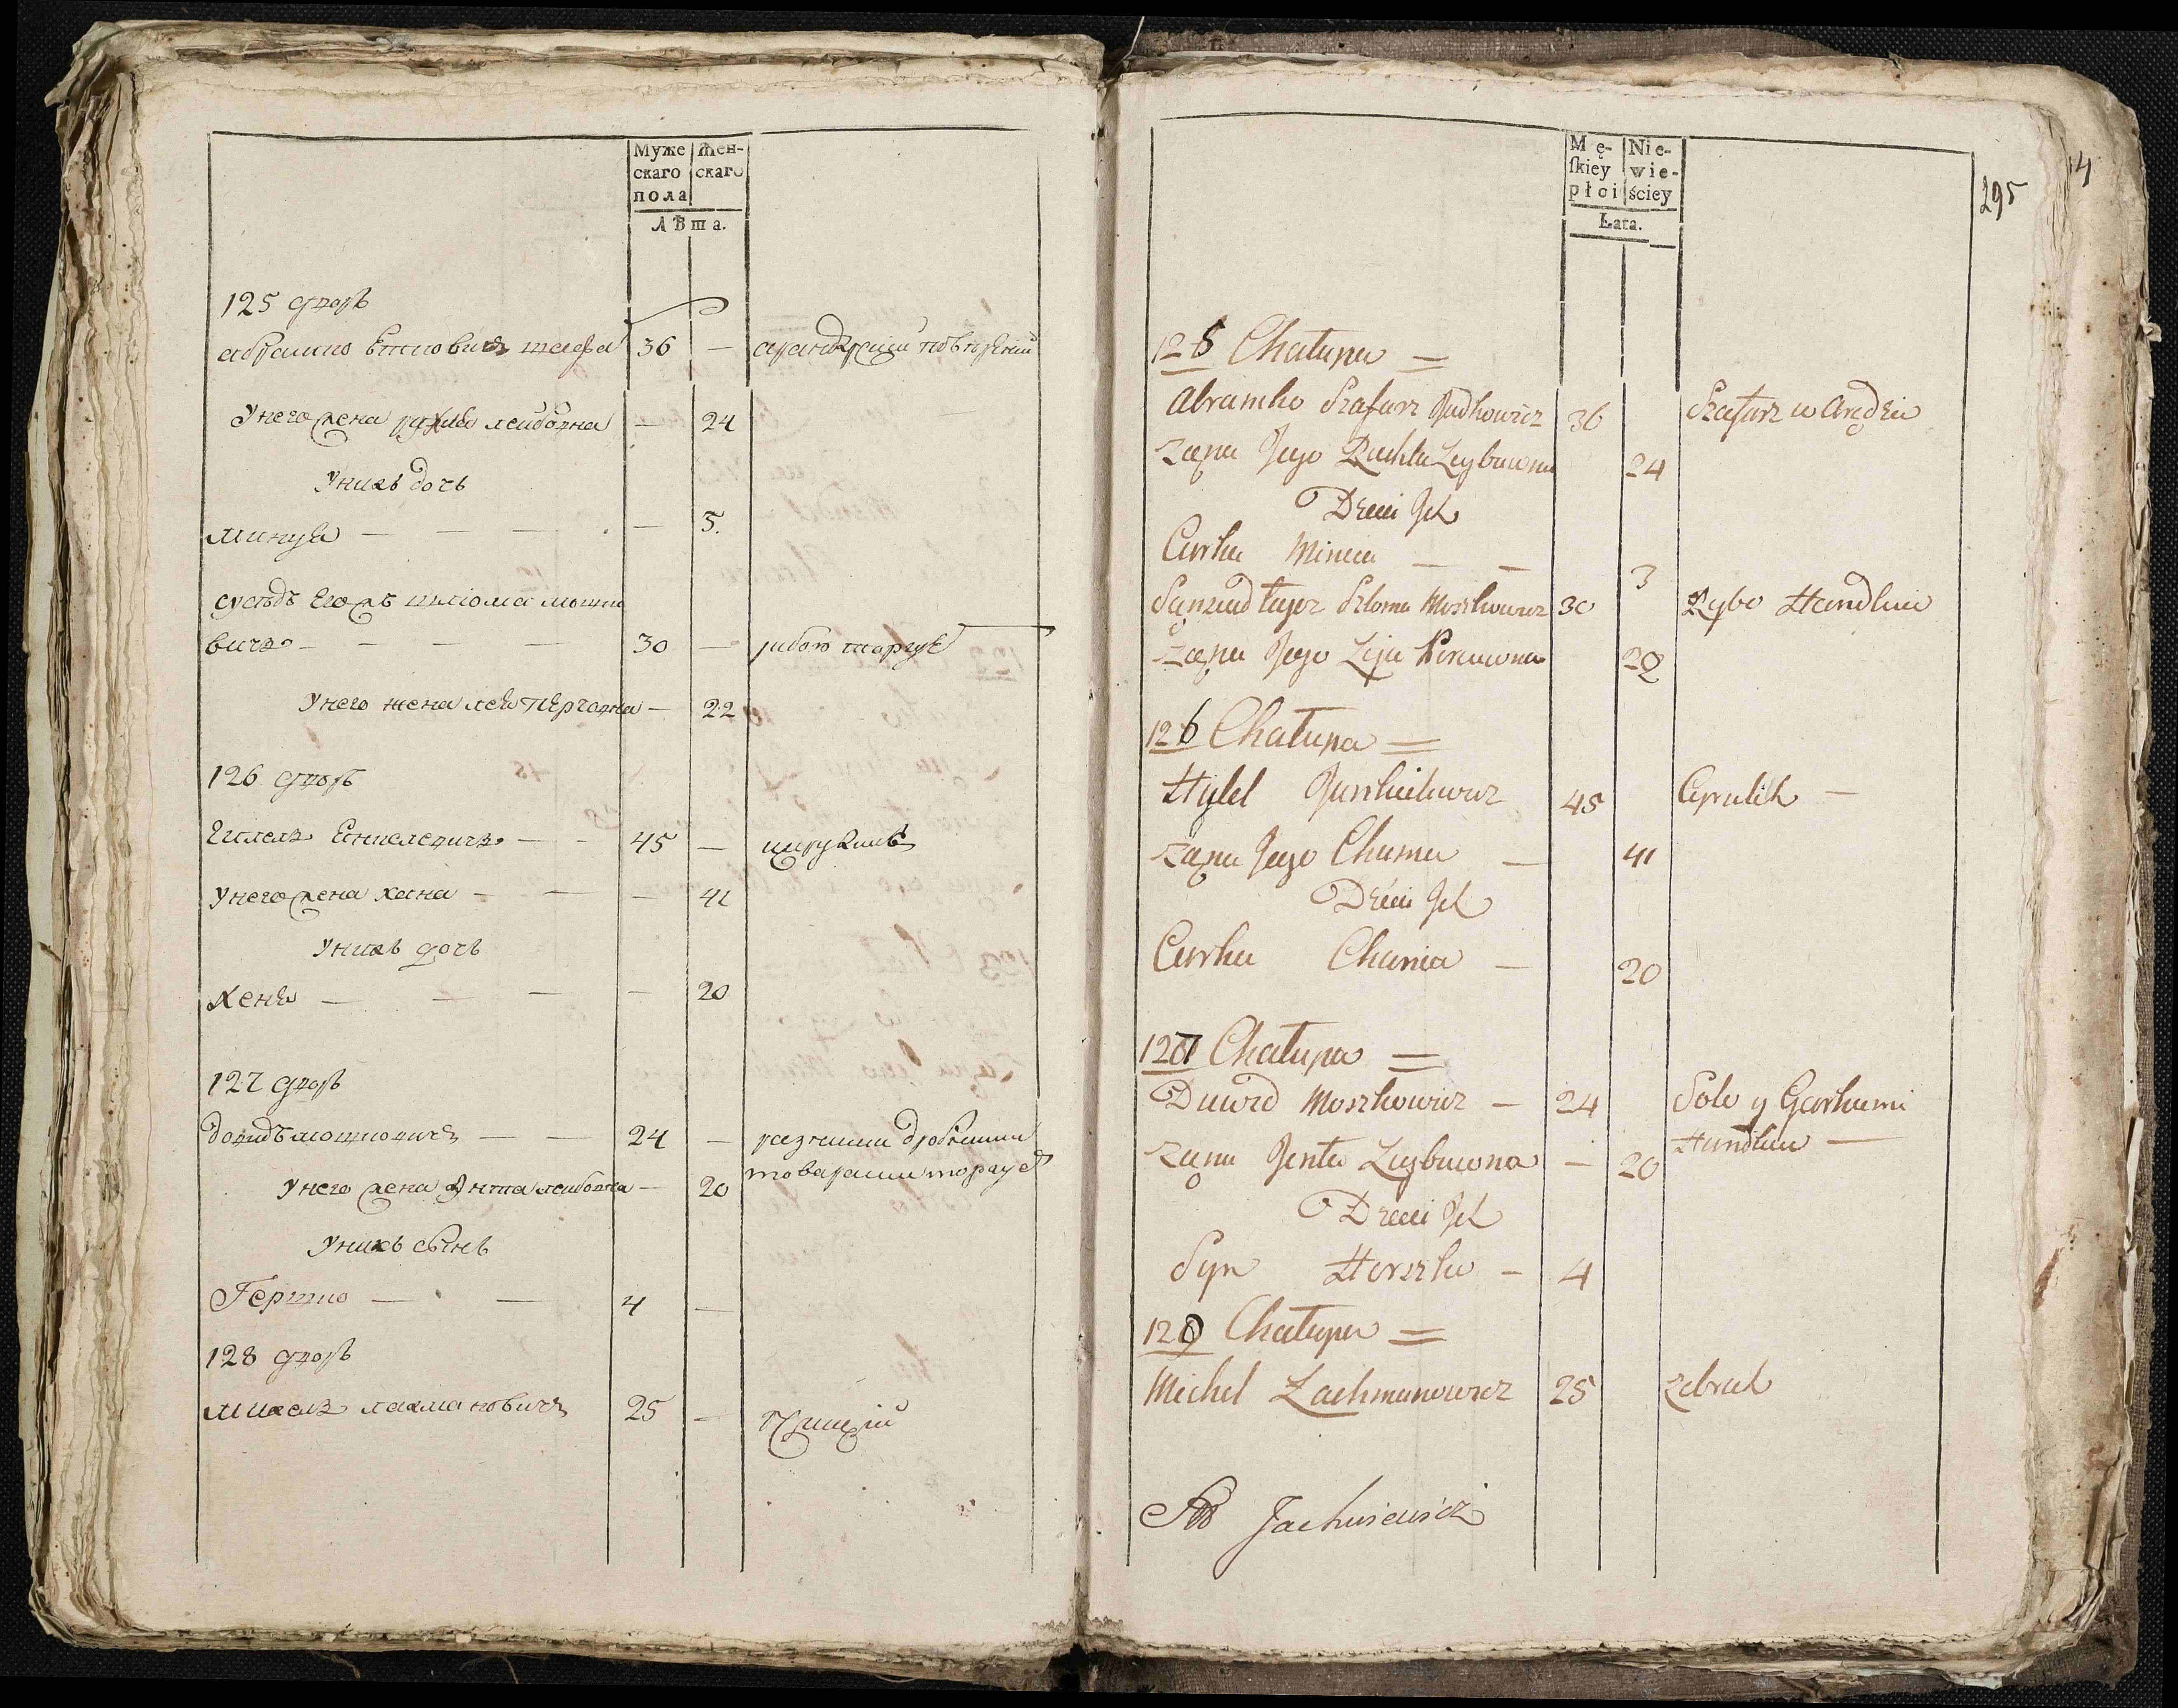 Муже
скаго
пола
Жен-
скаго
Лѣта.
125 дворъ
36 —
У него жена лейбовна — 24
У нихъ дочь
Минця — — — — 3.
суседъ Его шлома мошко
вичъ — — — — 30 — рибою торгуе
У него жена лея перцовна — 22
126 дворъ
— — 45 — цирулик
У него жена хана — — — 41
У нихъ дочь
Хеня — — — — 20
127 дворъ
довидъ мошковичъ — — 24 — разными дробними
товарами торгуе
У него жена Энта лейбовна — 20
У нихъ сынъ
Гершко — — 4 —
128 дворъ
михель лахмановичъ 25 —
Mę-
ſkiey
płci
Nie-
wie-
ściey
Łata.
295
125 Chałupa =
Abramko Szafarz Judkowicz 36 Szafarz w Arędzie
Zona Jego Ruchla Leybowna 24
Dzieci Jch
Curka Mincia — — 3
Sąsiad tegoz Szloma Moszkowicz 30 Rybo Handluie
Zona Jego Leja 22
126 Chałupa =
Hylel 45 Cyrulik —
Zona Jego Chuma — 41
Dzieci Jch
Curka Chania — 20
127 Chałupa =
Dawid Moszkowicz — 24 Solo y Garkami
Handluie —
Zona Jenta Leybowna — 20
Dzieci Jch
Syn Herszko — 4
128 Chałupa =
Michel Lachmanowicz 25 Zebrak